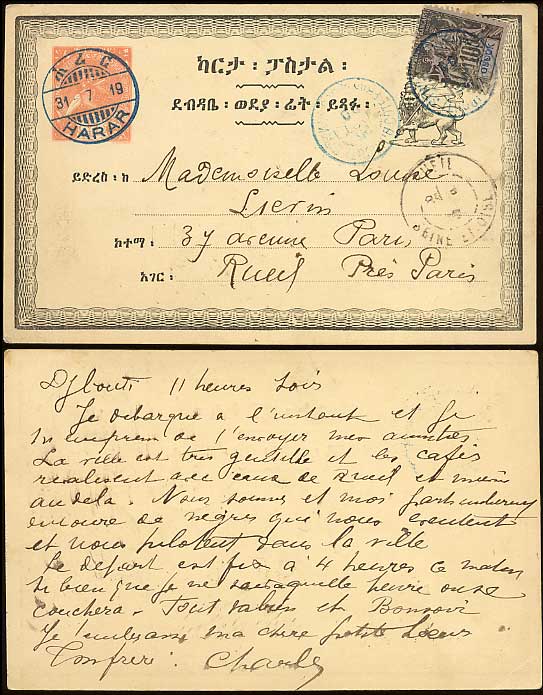 ሐረር
31 7 19
HARAR
ካርታ ፡ ፖስታል ፡
ይድረስ ፡ ከ Mademoiselle Louise
ከተማ ፡ 37 avenue Paris
አገር ፡ Rueil Près Paris
RUEIL
SEINE ET OISE
Djibouti 11 heures soir
Je débarque a l'instant et je
m'empresse de t'envoyer mes amitiés
La ville est très gentille et les cafés
rivalisent avec ceux de Rueil et même
au dela. Nous sommes et moi particulierement
entouré de nègres qui nous
et nous pilotent dans la ville
Le départ est fixé à 4 heures ce matin
si bien que je ne sais a quelle heure on se
couchera. Tout va bien et Bonsoir
Je t'embrasse ma chère petite soeur
Ton frère. Charles